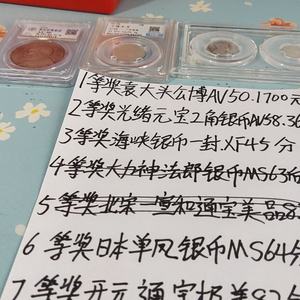 1等奖袁大头公博AV50.1700元
2等奖光绪元宝2角银币AV58.36
3等奖海峡银币一封XF45分
4等奖大力神法郎银币MS63
5等奖北宋宣和通宝美品8
6等奖日本单凤银币MS64
7等奖开元通宝